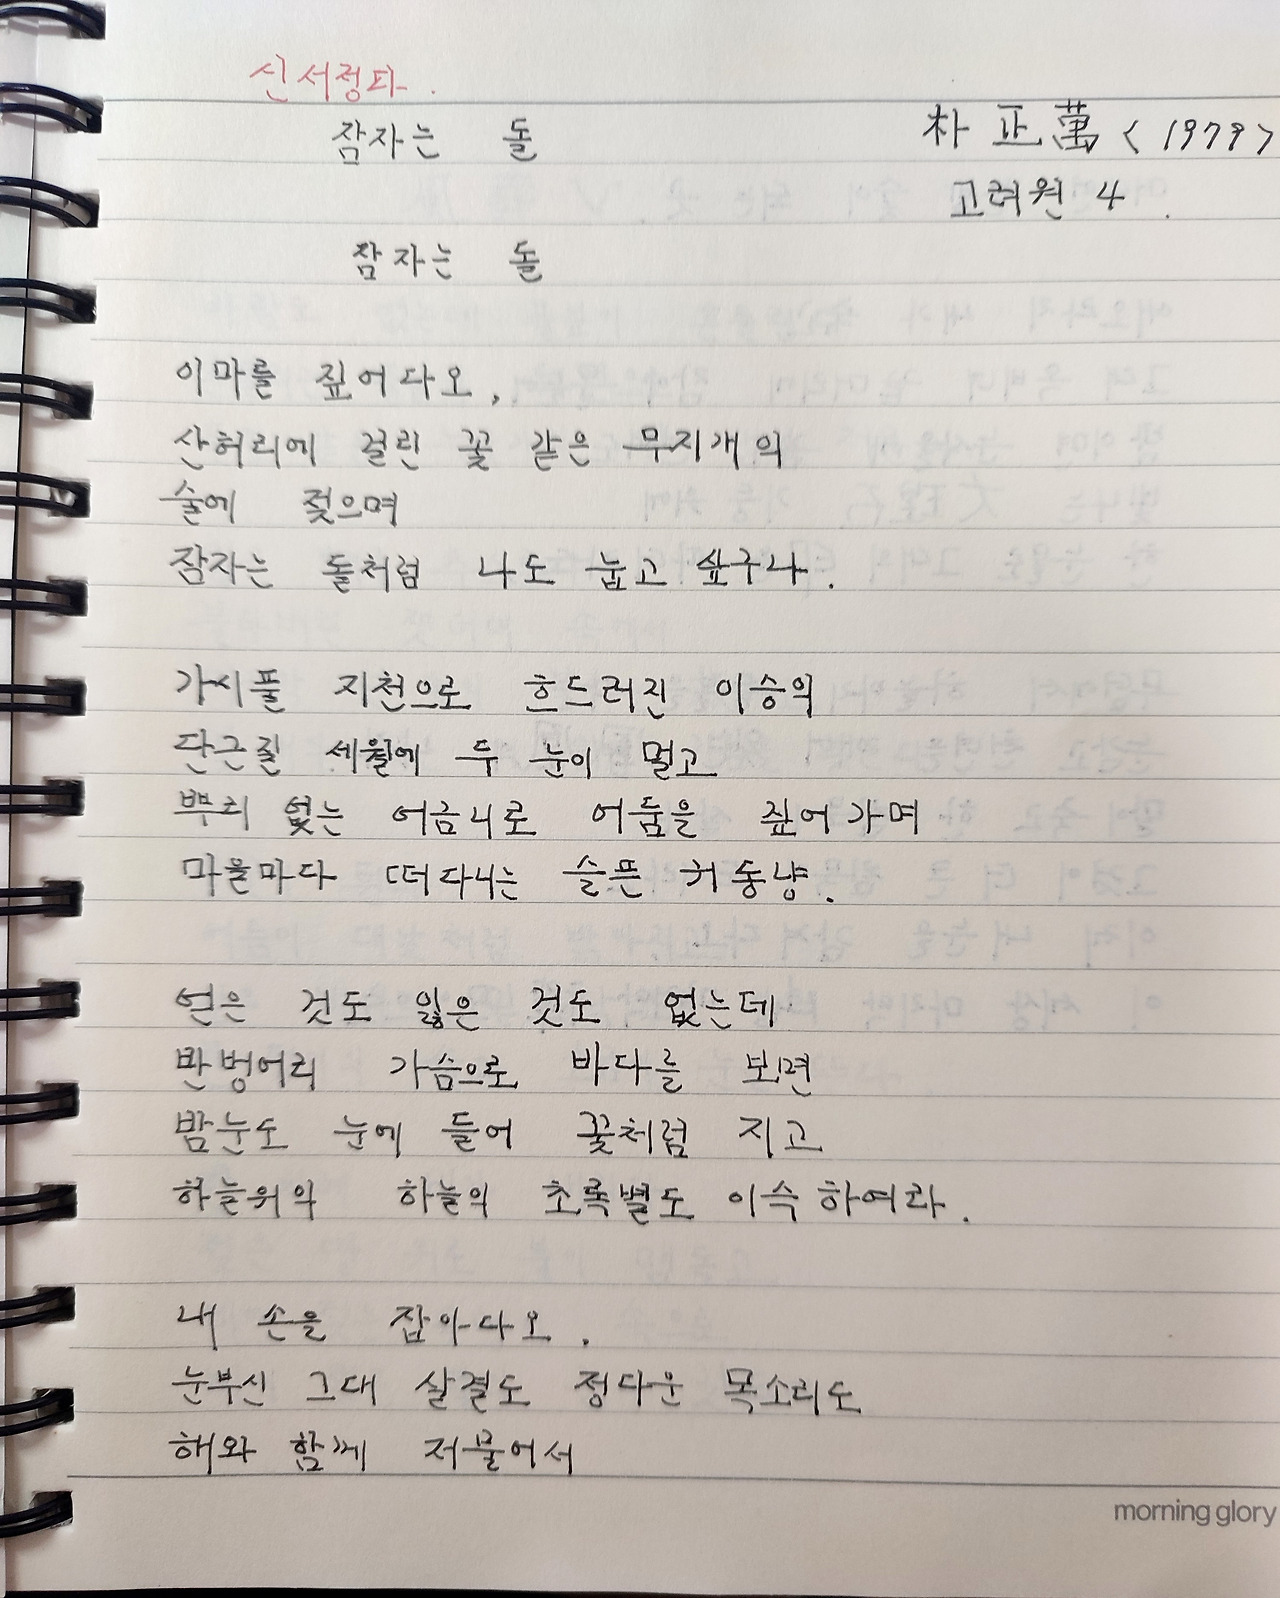 신서정타.
잠자는 돌
朴正萬 <1979>
고려원 4.
잠자는 돌
이마를 짚어다오,
산허리에 걸린 꽃 같은 무지개의
술에 젖으며
잠자는 돌처럼 나도 눕고 싶구나.
가시풀 지천으로 흐드러진 이승의
단근질 세월에 두 눈이 멀고
뿌리 없는 어금니로 어둠을 짚어가며
마을마다 떠다니는 슬픈 귀동냥.
얻은 것도 잃은 것도 없는데
반벙어리 가슴으로 바다를 보면
밤눈도 눈에 들어 꽃처럼 지고
하늘위의 하늘의 초록별도 이슥하여라.
내 손을 잡아다오.
눈부신 그대 살결도 정다운 목소리도
해와 함께 저물어서
morning glory